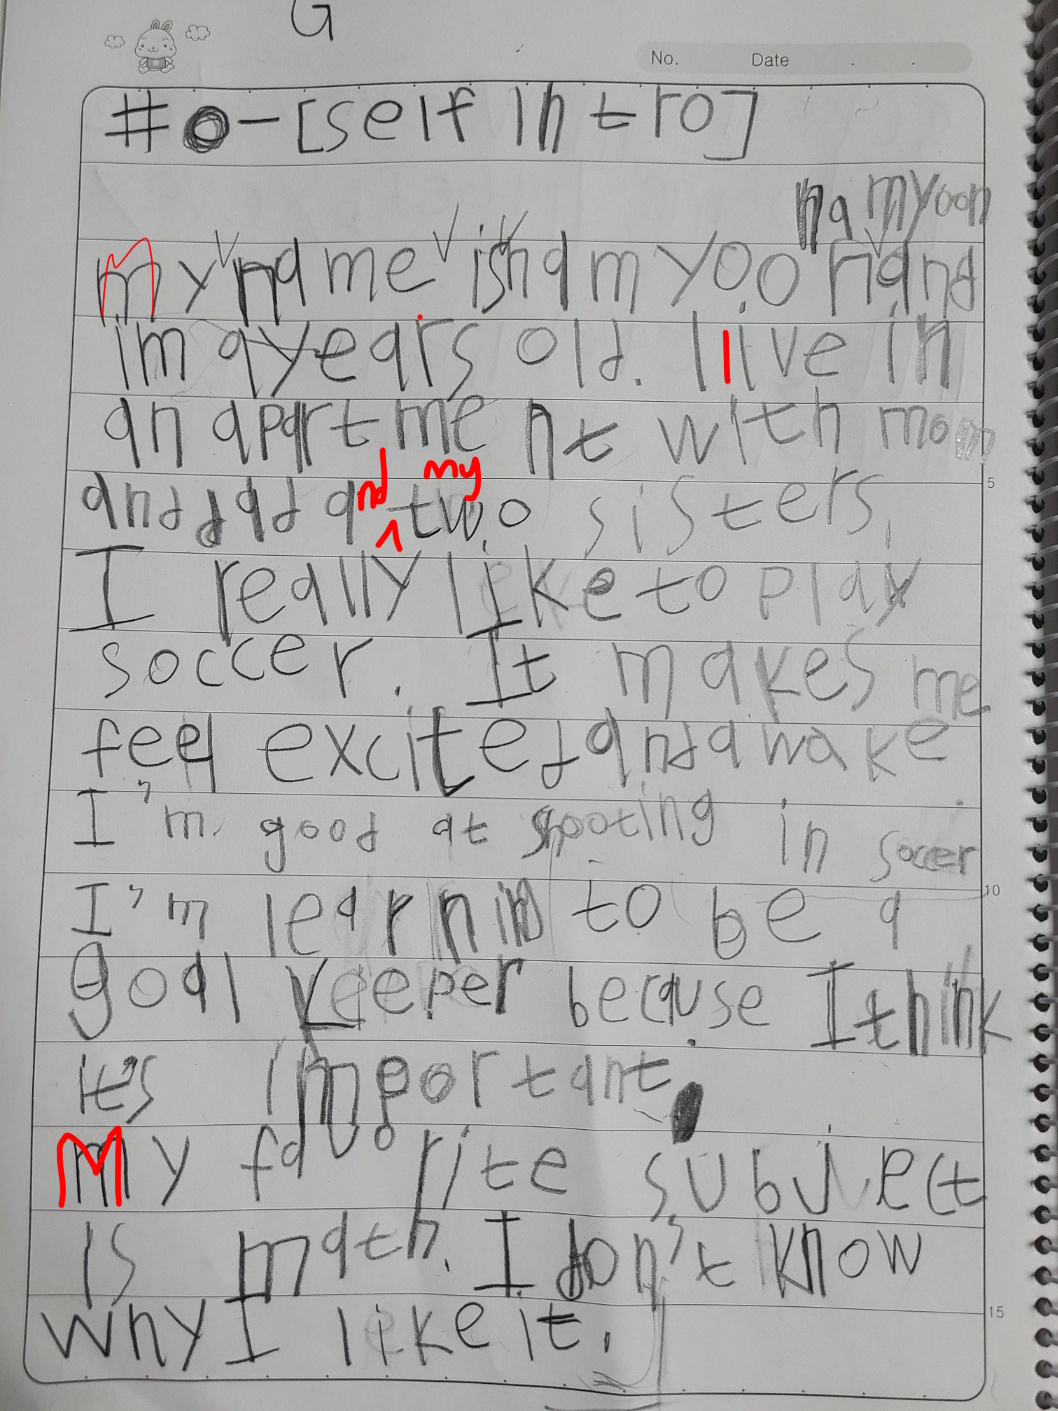 G
No. Date
#0-[self Intro]
hamyoon
My name is hamyoon and
im 9years old. I live in
an apartment with mom
and dad and my two sisters.
I really like to play
soccer. It makes me
feel excited and awake
I'm good at shooting in soccer
I'm learnin to be a
5
10
goal keeper because I think
it's important.
My favorite subject
is math. I don't know
why I like it.
15